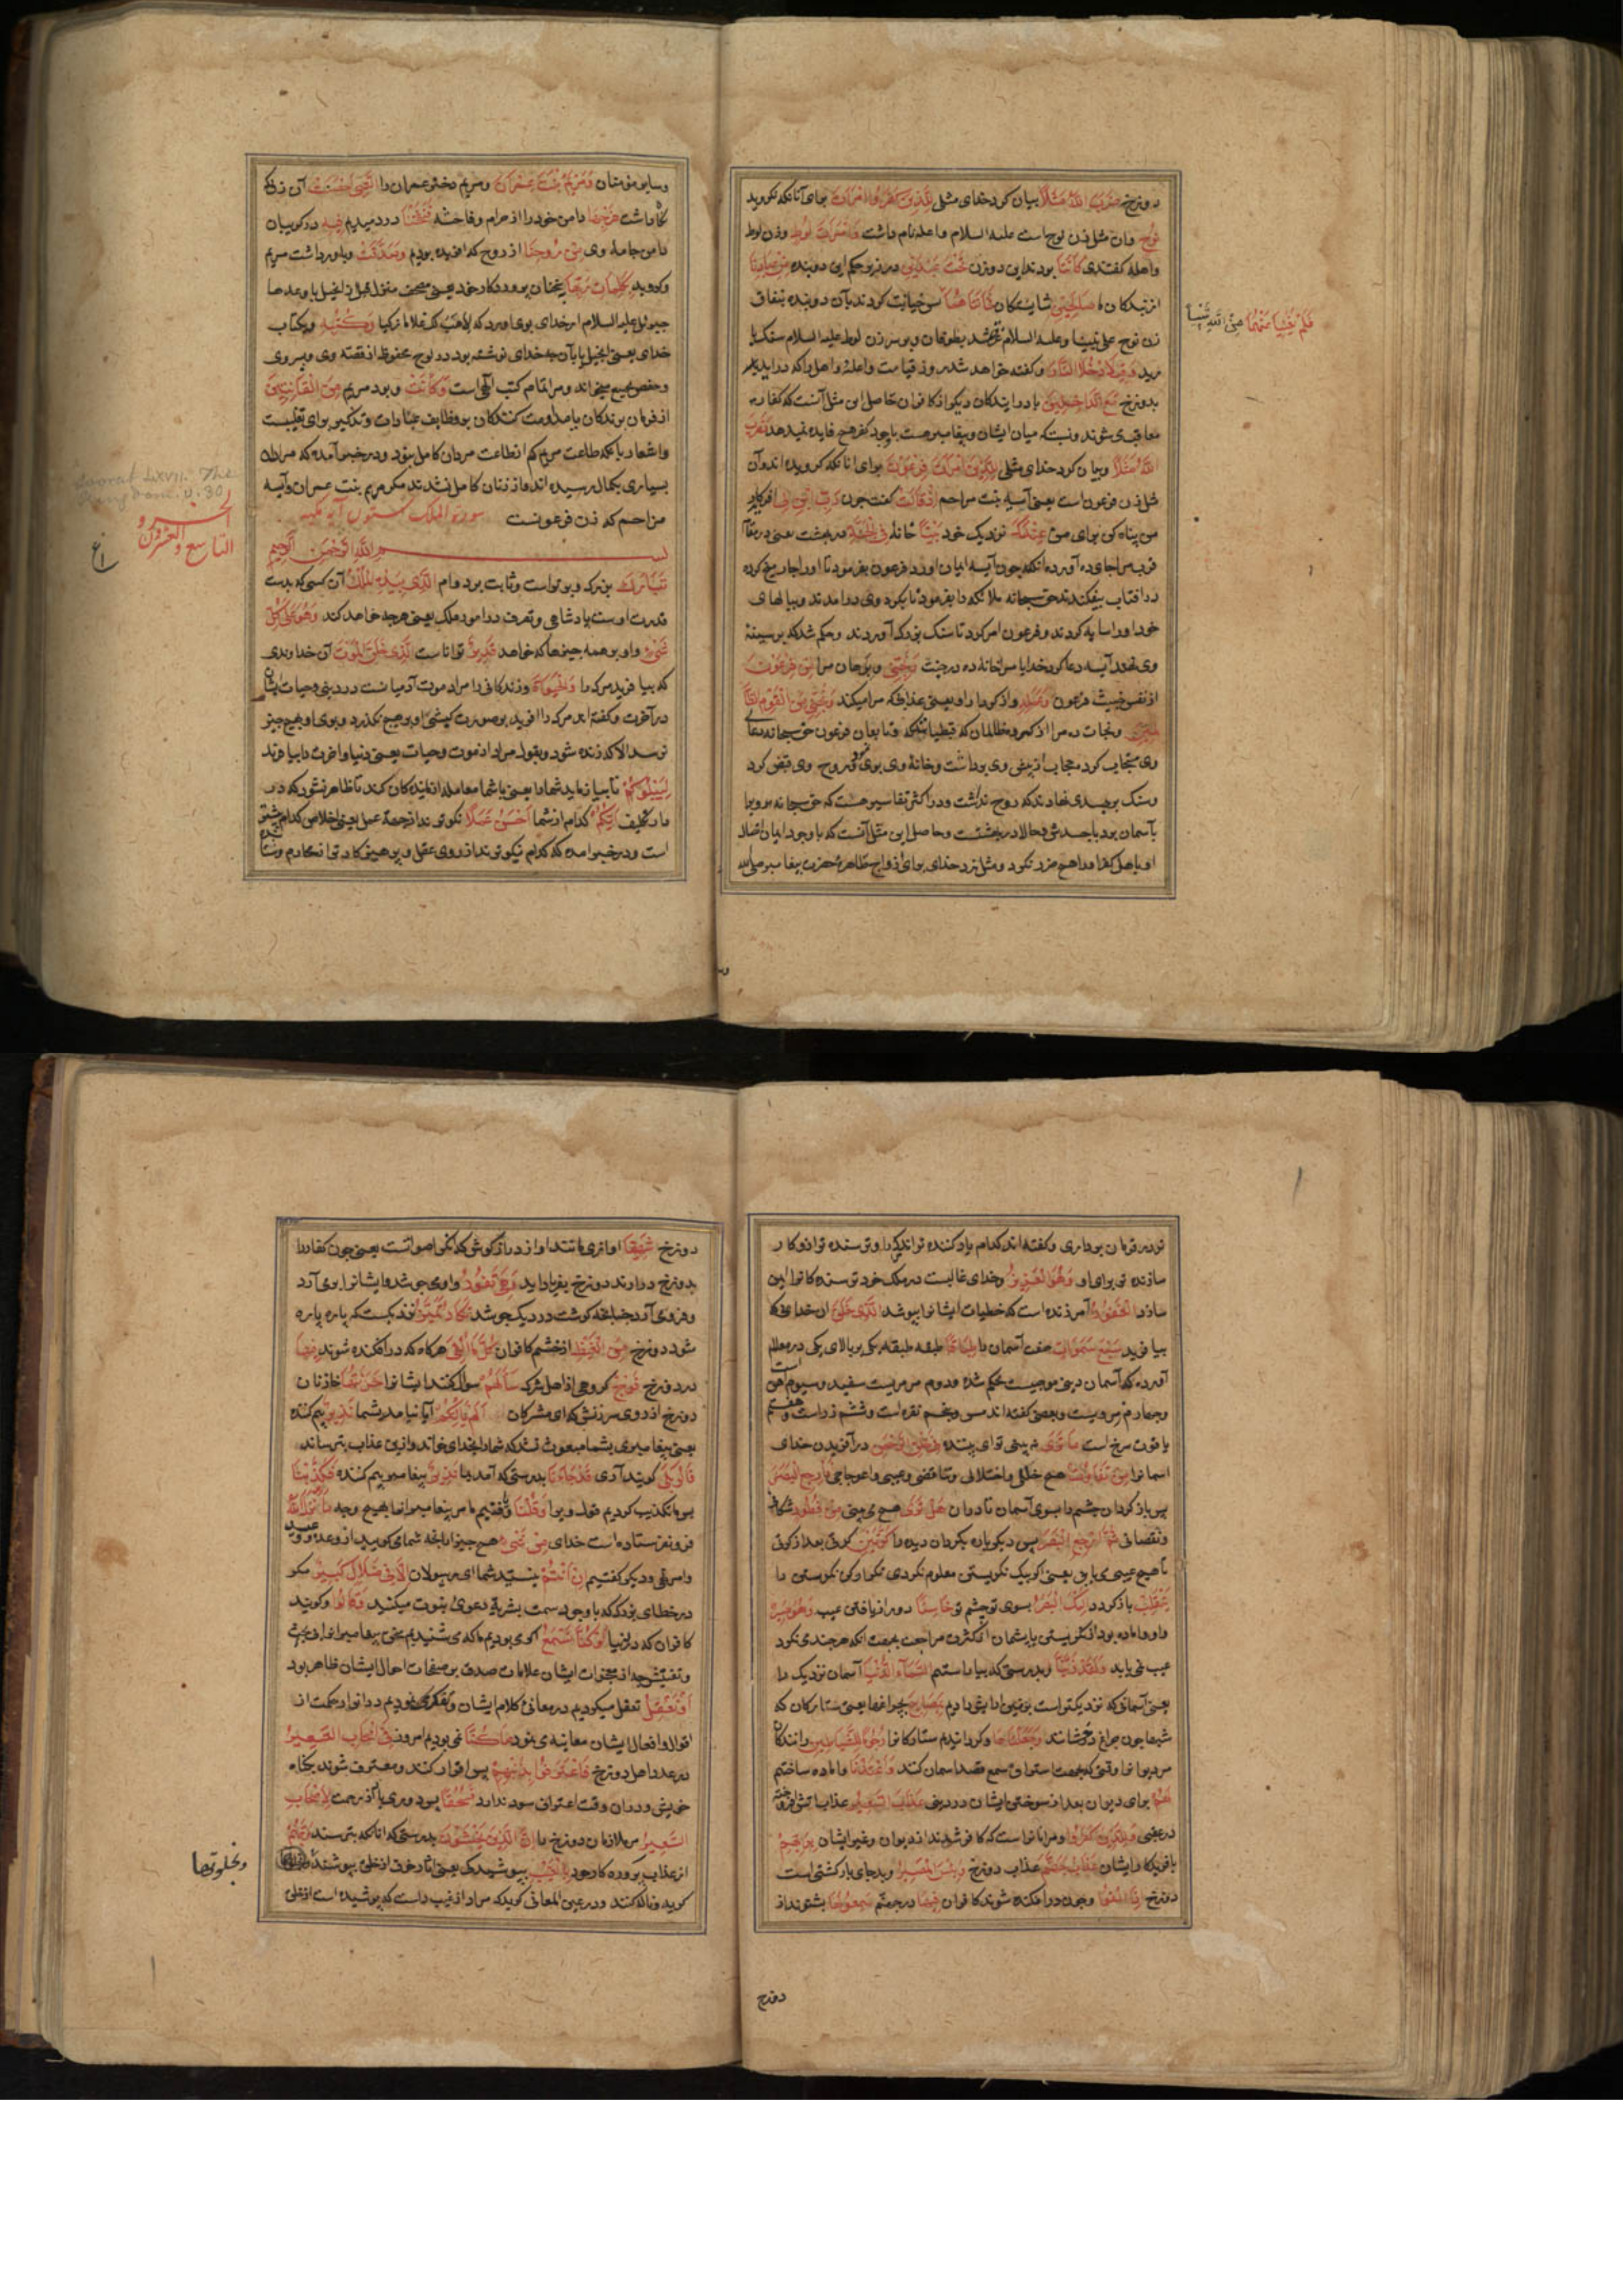 دوزخ ضَرَبَ اللهُ مَثَلًا بیان کرد خدای مثلی لِلَّذِینَ کَفَرُوا امْرَأَتَ برای آنانکه نکرویدند
نُوحٍ وان مثل زن نوح است علیه السلام واعله نام داشت وَامْرَأَتَ لُوطٍ وزن لوط
واهله کفتندی کَانَتَا بودند این دو زن تَحْتَ عَبْدَیْنِ در زیر حکم این دو بنده مِنْ عِبَادِنَا
از بندکان ما صَالِحَیْنِ شایستکان فَخَانَتَاهُمَا پس خیانت کردند با آن دو بنده بنفاق
فَلَمْ یُغْنِیَا عَنْهُمَا مِنَ اللهِ شَیْئًا
زن نوح علی نبینا وعلیه السلام غرق شد بطوفان وبر سر زن لوط علیه السلام سنک با
رید وَقِیلَ ادْخُلَا النَّارَ وکفته خواهد شد در روز قیامت واعله واهله را که درایید
بدوزخ مَعَ الدَّاخِلِینَ با درایندکان دیکر از کافران حاصل این مثل آنست که کفار
معاقب می شوند ونسبتی که میان ایشان وپیغامبر هست باوجود کفر هیچ فایده نمیدهد وَضَرَبَ
اللهُ مَثَلًا وبیان کرد خدای مثلی لِلَّذِینَ آمَنُوا امْرَأَتَ فِرْعَوْنَ برای انانکه کرویده اند وآن
مثل زن فرعون است یعنی آسیه بنت مزاحم اِذْ قَالَتْ کفت چون رَبِّ ابْنِ لِی
من بنا کن برای من عِنْدَکَ نزدیک خود بَیْتًا خانه فِی الْجَنَّةِ در بهشت یعنی در مقام
قرب مرا جای ده آورده انکه چون آسیه ایمان آورد فرعون بفرمود تا اورا چهار میخ کرده
در افتاب بیفکندند حق سبحانه ملائکه را بفرمود تا بکرد وی درامدند وببالهای
خود اورا سایه کردند وفرعون امر کرد تا سنک بزرک آوردند وحکم شد که بر سینهٔ
وی نهند آسیه دعا کرد خدایا مرا خانه ده در جنت وَنَجِّنِی وبرهان مرا مِنْ فِرْعَوْنَ
از نفس خبیث فرعون وَعَمَلِهِ واز کردار او یعنی عذابی که مرا میکند وَنَجِّنِی مِنَ الْقَوْمِ الظَّا
لِمِینَ ونجات ده مرا از کروه ظالمان که قبطیانند که تابعان فرعون حق سبحانه دعای
وی مستجاب کرد حجاب از پیش وی برداشت وخانهٔ وی بوی نمود وروح وی قبض کرد
وسنک بر جسدی نهادند که روح نداشت ودر اکثر تفاسیر هست که حق سبحانه او را
بآسمان برد با جسد وی وحالا در بهشتست وحاصل این مثل آنست که با وجود ایمان اتصال
او باهل کفر اورا هیچ ضرر نکرد ومثل زد خدای برای ازواج طاهرهٔ حضرت پیغامبر صلی الله
وسا
وسایر مؤمنان وَمَرْیَمَ ابْنَتَ عِمْرَانَ ومریم دختر عمران را الَّتِی اَحْصَنَتْ آن زنی که
نکاه داشت فَرْجَهَا دامن خود را از حرام وفاحشه فَنَفَخْنَا دردمیدیم فِیهِ در کریبان
دامن جامهٔ وی مِنْ رُوحِنَا از روح که افریده بودیم وَصَدَّقَتْ وباور داشت مریم
وکروید بِکَلِمَاتِ رَبِّهَا بسخنان پروردکار خود یعنی صحف منزله قبل از انجیل یا وعدها
جبرئیل علیه السلام از خدای بوی آورد که لِاَهَبَ لَکِ غُلَامًا زَکِیًّا وَکُتُبِهِ وبکتاب
خدای یعنی انجیل یا بآن چه خدای نوشته بود در لوح محفوظ از قصه وی وپسر وی
وحفص بجمع میخواند ومراد تمام کتب الهی است وَکَانَتْ وبود مریم مِنَ الْقَانِتِینَ
از فرمان برندکان یا مداومت کنندکان بوظایف عبادات وتذکیر برای تغلیبست
واشعار بانکه طاعت مریم کم از طاعت مردان کامل نبود ودر خبر آمده که مردان
بسیاری بکمال رسیده اند واز زنان کامل نشدند مکر مریم بنت عمران وآسیه
مزاحم که زن فرعونست سورة الملک ستون آیه مکیه
Soorat LXVII. The
Kingdom. v. 30
الجزو
التاسع والعشرون
بسم الله الرحمن الرحیم
تَبَارَکَ بزرک وبرتراست وثابت بردوام الَّذِی بِیَدِهِ الْمُلْکُ آن کسی که بدست
قدرت اوست پادشاهی وتصرف در امور ملک یعنی هرچه خواهد کند وَهُوَ عَلَی کُلِّ
شَیْءٍ واو بر همه چیزها که خواهد قَدِیرٌ تواناست الَّذِی خَلَقَ الْمَوْتَ آن خداوندی
که بیافرید مرک را وَالْحَیَوةَ وزندکانی را مراد موت آدمیانست در دنیی وحیات ایشان
در آخرت وکفته اند مرک را افرید بر صورت کبشی او بر هیچ چیز نکذرد وبوی او بهیچ چیز
نرسد الا که زنده شود وبقولی مراد از موت وحیات یعنی دنیا واخرت را بیافرید
لِیَبْلُوَکُمْ تا بیازماید شما را یعنی با شما معامله ازمایندکان کند تا ظاهر شود که در
دار تکلیف اَیُّکُمْ کدام از شما اَحْسَنُ عَمَلًا نکوترند از جهة عمل یعنی اخلاص کدام بیشتر
است ودر خبر امده که کدام نیکوترند از روی عقل وپرهیزکارتر از محارم
تردر فرمان برداری وکفته اند کدام یاد کننده تراند مرک را وترسنده تر از او وکار
سازنده تر برای او وَهُوَ الْعَزِیزُ وخدای غالبست در ملک خود ترسنده کانرا این
سازد الْغَفُورُ آمرزنده است که خطیات ایشانرا بپوشد الَّذِی خَلَقَ ان خدایی که
بیافرید سَبْعَ سَمَوَاتٍ هفت آسمان را طِبَاقًا طبقه طبقه یکی بر بالای یکی در معالم
آورده که آسمان دنیی موجیست محکم شده ودوم مرمریست سفید وسیوم آهن است
وچهارم وبعضی کفته اند مس وپنجم نقره است وششم زر است وهفتم
یاقوت سرخ است مَا تَرَی نه بینی تو ای بیننده فِی خَلْقِ الرَّحْمَنِ در آفریدن خدای
اسمانرا مِنْ تَفَاوُتٍ هیچ خللی واختلالی وتناقضی وعیبی واعوجاجی فَارْجِعِ الْبَصَرَ
پس باز کردان چشم را بسوی آسمان تا در ان هَلْ تَرَی هیچ می بینی مِنْ فُطُورٍ شکافی
ونقصانی ثُمَّ ارْجِعِ الْبَصَرَ پس دیکر باره بکردان دیده را کَرَّتَیْنِ کرتی بعد از کرتی
تا هیچ عیبی می یابی یعنی اکر بیک نکریستن معلوم نکردی تکرار کن نکریستن را
یَنْقَلِبْ باز کردد اِلَیْکَ الْبَصَرُ بسوی تو چشم تو خَاسِئًا دور از یافتن عیب وَهُوَ حَسِیرٌ
واو مانده بود از نکریستن یا پشیمان از کثرت مراجعت بجهت انکه هر چندی نکرد
عیب نمی یابد وَلَقَدْ زَیَّنَّا وبدرستی که بیاراستیم السَّمَاءَ الدُّنْیَا آسمان نزدیک را
یعنی آسمانی که نزدیکتراست بزمین ارایش دادیم بِمَصَابِیحَ بچراغها یعنی ستارکان که
شبها چون چراغ درخشانند وَجَعَلْنَاهَا وکردانیدیم ستارکانرا رُجُومًا لِلشَّیَاطِینِ رانندکان
مر دیوانرا وقتی که بجهت استراق سمع قصد اسمان کنند وَاَعْتَدْنَا وآماده ساختیم
لَهُمْ برای دیوان بعد از سوختن ایشان در دنیی عَذَابَ السَّعِیرِ عذاب آتش افروخته
در عقبی وَلِلَّذِینَ کَفَرُوا ومر انانراست که کافر شدند از دیوان وغیر ایشان بِرَبِّهِمْ
بافریدکار ایشان عَذَابُ جَهَنَّمَ عذاب دوزخ وَبِئْسَ الْمَصِیرُ وبد جای بازکشتی است
دوزخ اِذَا اُلْقُوا وچون درافکنده شوند کافران فِیهَا در جهنم سَمِعُوا لَهَا بشنوند از
دوزخ
دوزخ شَهِیقًا اوازی مانند اواز دراز کوش که انکر اصواتست یعنی چون کفار را
بدوزخ درارند دوزخ بفریاد اید وَهِیَ تَفُورُ واو می جوشد وایشانرا بر می آرد
وفرو می آرد چنانچه کوشت در دیک جوشد تَکَادُ تَمَیَّزُ نزدیکست که پاره پاره
شود دوزخ مِنَ الْغَیْظِ از خشم کافران کُلَّمَا اُلْقِیَ هر کاه که درافکنده شوند فِیهَا
در دوزخ فَوْجٌ کروهی از اهل شرک سَاَلَهُمْ سوال کنند ایشانرا خَزَنَتُهَا خازنان
دوزخ از روی سرزنش که ای مشرکان اَلَمْ یَاْتِکُمْ آیا نیامد بشما نَذِیرٌ بیم کننده
یعنی پیغامبری بشما مبعوث نشد که شما را بخدای خواند واز این عذاب بترساند
قَالُوا بَلَی کویند آری قَدْ جَاءَنَا بدرستی که آمد بما نَذِیرٌ پیغامبر بیم کننده فَکَذَّبْنَا
پس ما تکذیب کردیم قول ویرا وَقُلْنَا وکفتیم ما مر پیغامبرانرا بهیچ وجه مَا نَزَّلَ اللهُ
فرو نفرستاده است خدای مِنْ شَیْءٍ هیچ چیز از انچه شما می کویید از وعد ووعید
وامر ونهی ودیکر کفتیم اِنْ اَنْتُمْ نیستید شما ای رسولان اِلَّا فِی ضَلَالٍ کَبِیرٍ مکر
در خطای بزرک که با وجود سمت بشریة دعوی نبوت میکنید وَقَالُوا وکویند
کافران که در دنیا لَوْ کُنَّا نَسْمَعُ اکر می بودیم ما که می شنیدیم سخن پیغامبرانرا بی بحث
وتفتیش چه از معجزات ایشان علامات صدق بر صفحات احوال ایشان ظاهر بود
اَوْ نَعْقِلُ تعقل میکردیم در معانی کلام ایشان وتفکر می نمودیم در انوار حکمت از
اقوال وافعال ایشان معاینه می نمود مَا کُنَّا نمی بودیم امروز فِی اَصْحَابِ السَّعِیرِ
در عداد اهل دوزخ فَاعْتَرَفُوا بِذَنْبِهِمْ پس اقرار کنند ومعترف شوند بکناه
خویش ودران وقت اعتراف سود ندارد فَسُحْقًا پس دوری باد از رحمت لِاَصْحَابِ
السَّعِیرِ مر ملازمان دوزخ را اِنَّ الَّذِینَ یَخْشَوْنَ بدرستی که انانکه بترسند رَبَّهُمْ
از عذاب پروردکار خود بِالْغَیْبِ بپوشیدکی یعنی آثار خوف از خلق بپوشند
کریه وناله کنند ودر عین المعانی کوید که مراد از غیب دلست که پوشیده است از خلق